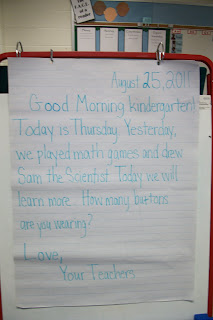 August 25, 2011
Good Morning Kindergarten!
Today is Thursday. Yesterday,
we played math games and drew
Sam the Scientist. Today we will
learn more. How many buttons
are you wearing?
Love,
Your Teachers